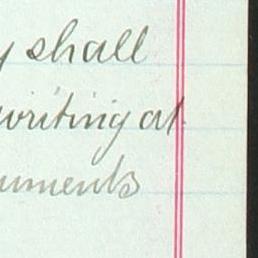 y shall
writing at
uments